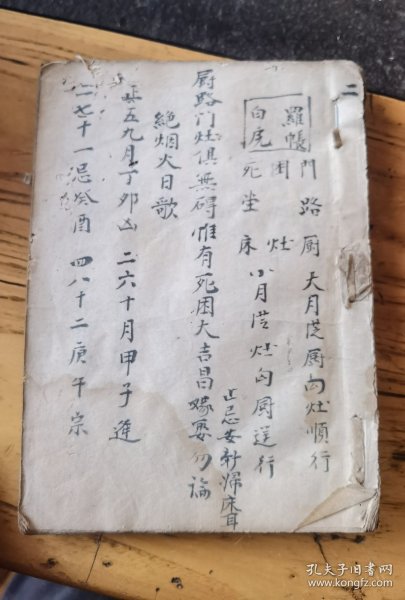 二
羅帳
白虎
門 路 厨 大月從厨向灶順行
困 灶 小月從灶向厨逆行
死 堂 床
止忌安新婦床耳
厨路門灶俱無碍惟有死困大吉昌嫁娶勿論
絕烟火日歌
正五九月丁卯凶 二六十月甲子逢
三七十一忌癸酉 四八十二庚午宗
孔夫子旧书网
www.kongfz.com